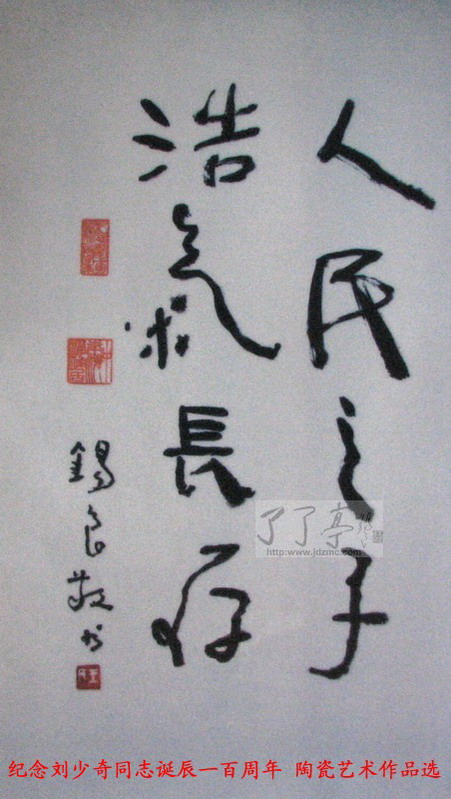 人民之子
浩氣長存
錫良敬书
了了亭
http://www.jdzmc.com
纪念刘少奇同志诞辰一百周年 陶瓷艺术作品选